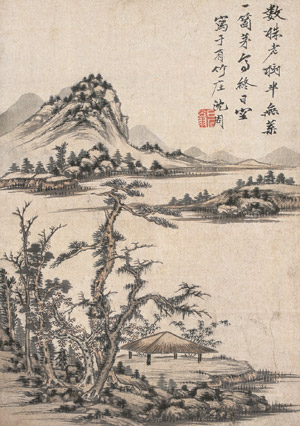 数株老樹半無葉
一箇茅亭終日空
寫于有竹庄 沈周